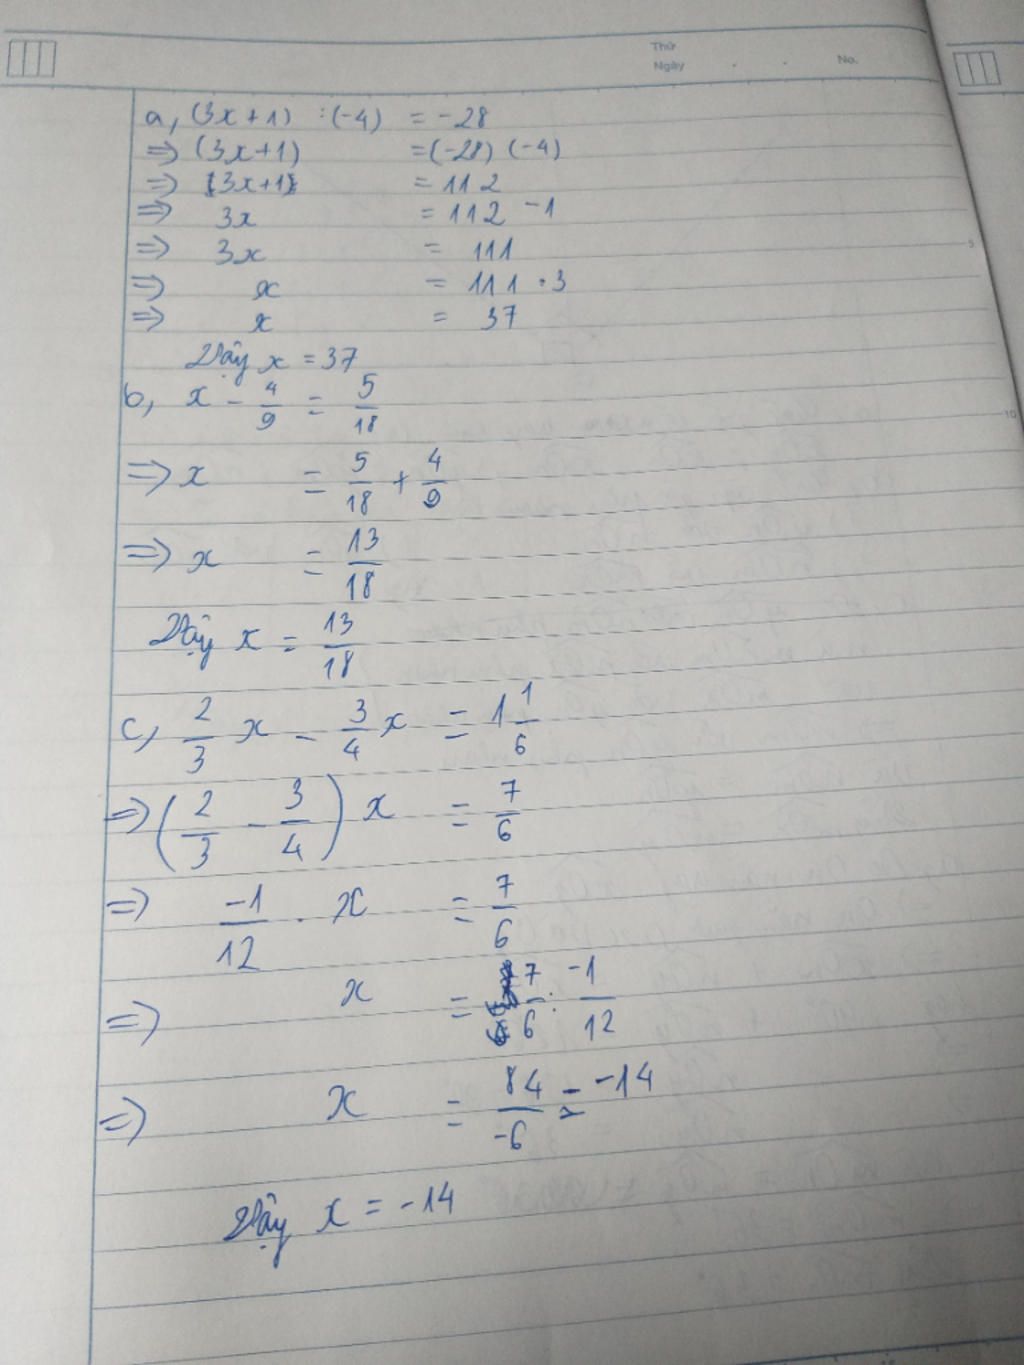 Thứ
Ngày . . No.
a, (3x+1) : (-4) = -28
=> (3x+1) = (-28) (-4)
=> (3x+1) = 112
=> 3x = 112 - 1
=> 3x = 111
=> x = 111 · 3
=> x = 37
Vậy x = 37
b, x - 4/9 = 5/18
=> x = 5/18 + 4/9
=> x = 13/18
Vậy x = 13/18
c, 2/3 x - 3/4 x = 1 1/6
=> (2/3 - 3/4) x = 7/6
=> -1/12 . x = 7/6
=> x = 7/6 : -1/12
=> x = 84/-6 = -14
Vậy x = -14
5
10